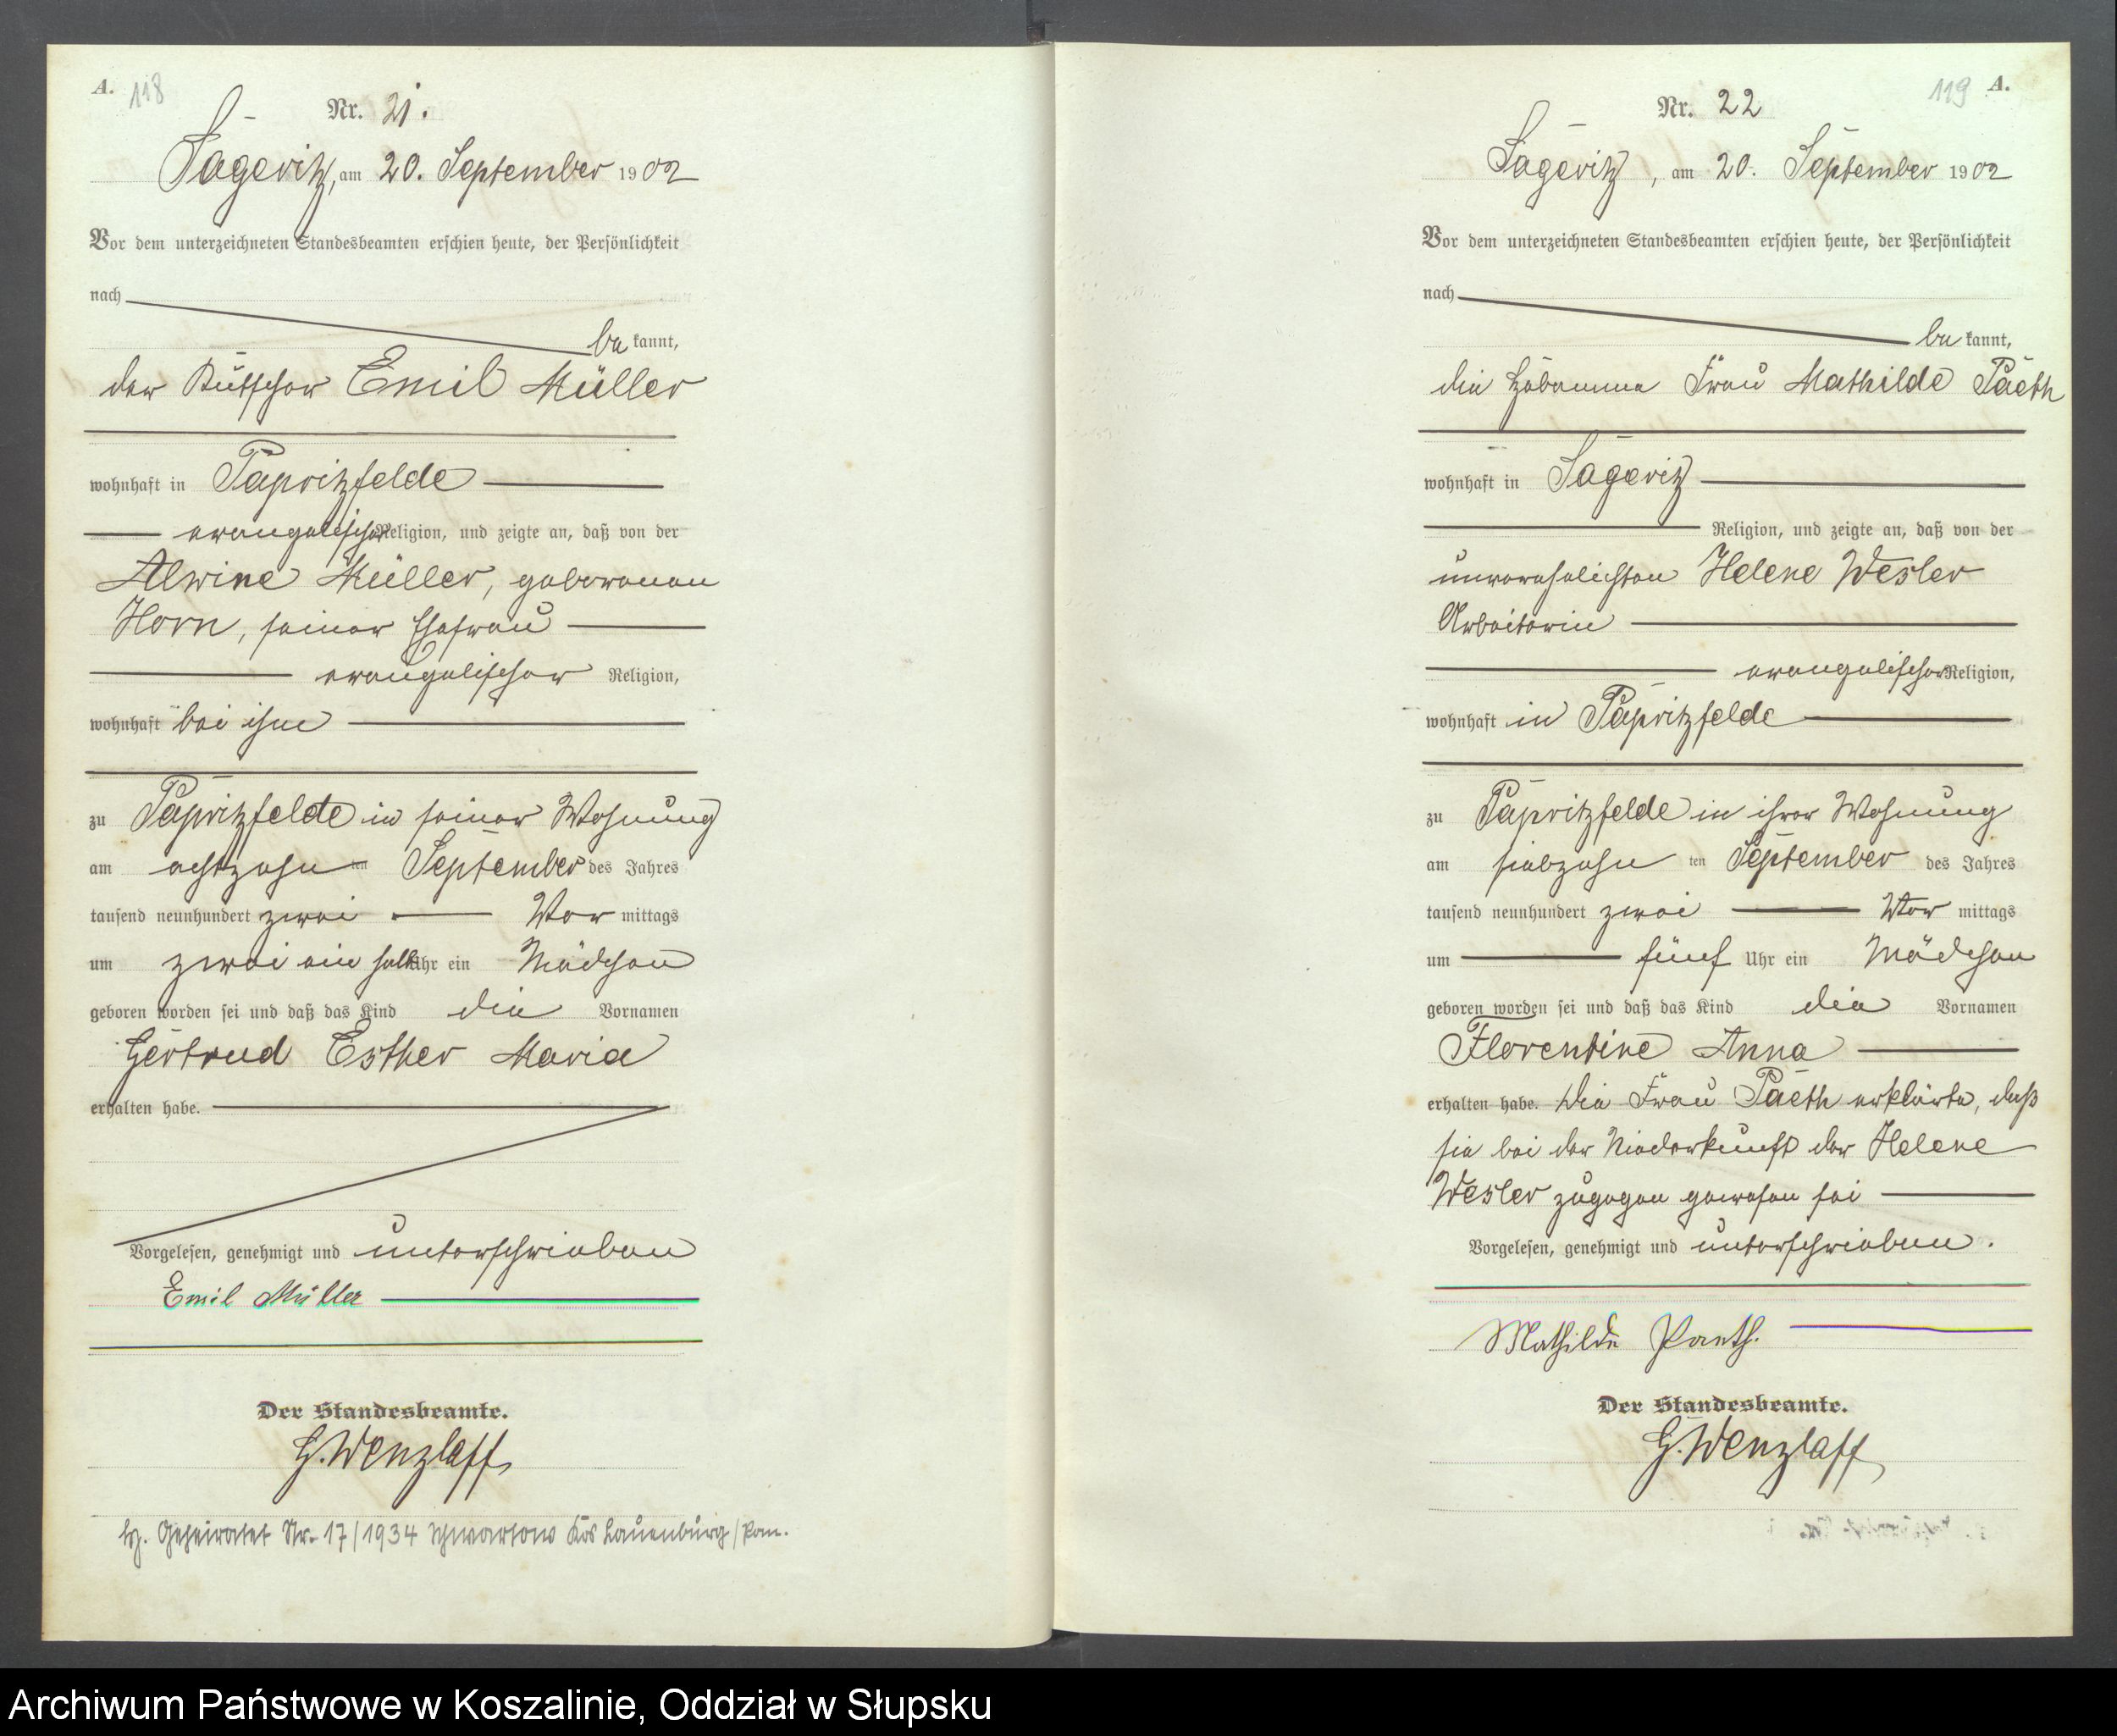 A. 118
Nr. 21.
Sageritz, am 20. September 1902
Vor dem unterzeichneten Standesbeamten erschien heute, der Persönlichkeit
nach
be kannt,
der Kutscher Emil Müller
wohnhaft in Papritzfelde
evangelischer Religion, und zeigte an, daß von der
Alwine Müller, geborenen
Horn, seiner Ehefrau
evangelischer Religion,
wohnhaft bei ihm
zu Papritzfelde in seiner Wohnung
am achtzehn ten September des Jahres
tausend neunhundert zwei Vor mittags
um zwei ein halb Uhr ein Mädchen
geboren worden sei und daß das Kind die Vornamen
Gertrud Esther Maria
erhalten habe.
Vorgelesen, genehmigt und unterschrieben
Emil Müller
Der Standesbeamte.
G. Wenzlaff
Geheiratet Nr. 17/1934 Schwartow Krs Lauenburg/Pom.
119 A.
Nr. 22
Sageritz, am 20. September 1902
Vor dem unterzeichneten Standesbeamten erschien heute, der Persönlichkeit
nach
be kannt,
die Hebamme Frau Mathilde Paeth
wohnhaft in Sageritz
Religion, und zeigte an, daß von der
unverehelichten Helene Wesler
Arbeiterin
evangelischer Religion,
wohnhaft in Papritzfelde
zu Papritzfelde in ihrer Wohnung
am siebzehn ten September des Jahres
tausend neunhundert zwei Vor mittags
um fünf Uhr ein Mädchen
geboren worden sei und daß das Kind die Vornamen
Florentine Anna
erhalten habe. Die Frau Paeth erklärte, daß
sie bei der Niederkunft der Helene
Wesler zugegen gewesen sei
Vorgelesen, genehmigt und unterschrieben.
Mathilde Paeth.
Der Standesbeamte.
G. Wenzlaff
Archiwum Państwowe w Koszalinie, Oddział w Słupsku